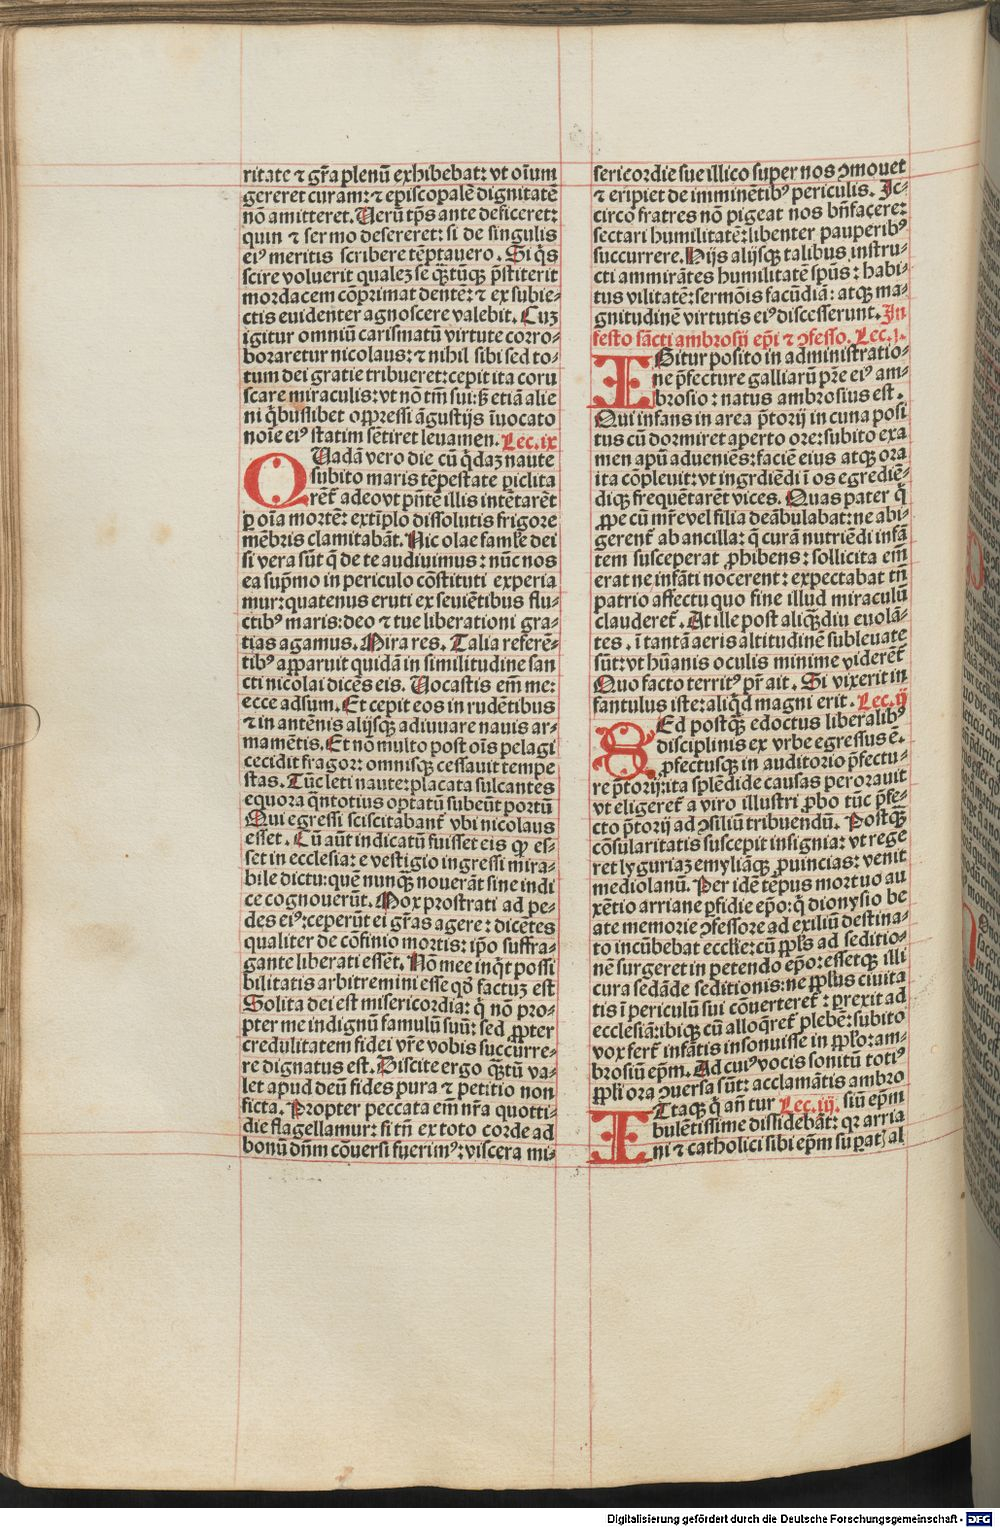 ritate ⁊ gr̄a plenū exhibebat: vt oīum
gereret curam: ⁊ episcopalē dignitatē
nō amitteret. Uerū tp̄s ante deficeret:
quin ⁊ sermo desereret: si de singulis
eiꝰ meritis scribere tēptauero. Si q̄s
scire voluerit qualez se q̄ꝫtūqꝫ p̄stiterit
mordacem cōprimat dentē: ⁊ ex subie⸗
ctis euidenter agnoscere valebit. Cuz
igitur omniū carismatū virtute corro⸗
boraretur nicolaus: ⁊ nihil sibi sed to⸗
tum dei gratie tribueret: cepit ita coru
scare miraculis: vt nō tm̄ sui: ꝫ etiā alie
ni q̄buslibet oppressi āgustijs īuocato
noīe eiꝰ statim sētiret leuamen. Lec.ix
QUadā vero die cū q̄daz naute
subito maris tēpestate piclita
rēt̄ adeo vt pn̄tē illis intētarēt
ꝑ oīa mortē: extiplo dissolutis frigore
mēbris clamitabāt. Nicolae famł'e dei
si vera sūt q̄ de te audiuimus: nūc nos
ea sup̄mo in periculo cōstituti experia
mur: quatenus eruti ex seuiētibus flu⸗
ctibꝰ maris: deo ⁊ tue liberationi gra⸗
tias agamus. Mira res. Talia referē⸗
tibꝰ apparuit quidā in similitudine san
cti nicolai dicēs eis. Uocastis em̄ me:
ecce adsum. Et cepit eos in rudētibus
⁊ in antēnis alijsqꝫ adiuuare nauis ar⸗
mamētis. Et nō multo post oīs pelagi
cecidit fragor: omnisqꝫ cessauit tempe
stas. Tūc leti naute: placata sulcantes
equora q̄ntotius optatū subeūt portū
Qui egressi sciscitabant̄ vbi nicolaus
esset. Cū aūt indicatū fuisset eis ꝙ es⸗
set in ecclesia: e vestigio ingressi mira⸗
bile dictu: quē nunqꝫ nouerāt sine indi
ce cognouerūt. Mox prostrati ad pe⸗
des eiꝰ: ceperūt ei gr̄as agere: dicētes
qualiter de cōfinio mortis: ip̄o suffra⸗
gante liberati essēt. Nō mee inq̄t possi
bilitatis arbitremini esse qd̄ factuz est
Solita dei est misericordia: q̄ nō pro⸗
pter me indignū famulū suū: sed ꝓpter
credulitatem fidei vr̄e vobis succurre⸗
re dignatus est. Discite ergo qꝫtū va⸗
let apud deū fides pura ⁊ petitio non
ficta. Propter peccata em̄ nr̄a quotti⸗
die flagellamur: si tn̄ ex toto corde ad
bonū dn̄m cōuersi fuerimꝰ: viscera mi⸗
sericordie sue illico super nos ꝯmouet
⁊ eripiet de imminētibꝰ periculis. Ic⸗
circo fratres nō pigeat nos bn̄facere:
sectari humilitatē: libenter pauperibꝰ
succurrere. Hijs alijsqꝫ talibus instru⸗
cti ammirātes humilitatē sp̄us: ⁊ habi⸗
tus vilitatē: sermōis facūdiā: atqꝫ ma⸗
gnitudinē virtutis eiꝰ discesserunt. In
festo sācti ambrosij ep̄i ⁊ ꝯfesso. Lec.j.
IGitur posito in ad̄ministratio⸗
ne p̄fecture galliarū pr̄e eiꝰ am⸗
brosio: natus ambrosius est.
Qui infans in area p̄torij in cuna posi
tus cū dormiret aperto ore: subito exa
men apuū adueniēs: faciē eius atqꝫ ora
ita cōpleuit: vt ingrdiēdi ī os egrediē⸗
diqꝫ frequētarēt vices. Quas pater q̄
ꝓpe cū mr̄e vel filia deābulabat: ne abi⸗
gerent̄ ab ancilla: q̄ curā nutriēdi infā
tem susceperat ꝓhibens: sollicita em̄
erat ne infāti nocerent: expectabat tn̄
patrio affectu quo fine illud miraculū
clauderet̄. At ille post aliqꝫdiu euolā⸗
tes. ī tantā aeris altitudinē subleuate
sūt: vt hūanis oculis minime viderēt̄
Quo facto territꝰ pr̄ ait. Si vixerit in
fantulus iste: aliq̄d magni erit. Lec.ij
SEd postqꝫ edoctus liberalibꝰ
disciplinis ex vrbe egressus ē.
ꝓfectusqꝫ in auditorio p̄fectu⸗
re p̄torij: ita splēdide causas perorauit
vt eligeret̄ a viro illustri ꝓbo tūc p̄fe⸗
cto p̄torij ad ꝯsiliū tribuendū. Postqꝫ
cōsularitatis suscepit insignia: vt rege
ret lyguriaz emyliāqꝫ ꝓuincias: venit
mediolanū. Per idē tēpus mortuo au
xētio arriane ꝑfidie ep̄o: q̄ dionysio be
ate memorie ꝯfessore ad exiliū destina⸗
to incūbebat eccl'ie: cū ppl̄s ad seditio⸗
nē surgeret in petendo ep̄o: essetqꝫ illi
cura sedāde seditionis: ne ppl̄us ciuita
tis ī periculū sui cōuerteret̄: perexit ad
ecclesiā: ibiqꝫ cū alloq̄ret̄ plebē: subito
vox fert̄ infātis insonuisse in ppl̄o: am⸗
brosiū ep̄m. Ad cuiꝰ vocis sonitū totiꝰ
ppl̄i ora ꝯuersa sūt: acclamātis ambro
ITaqꝫ q̄ an̄ tur Lec.iij. siū ep̄m
bulētissime dissidebāt: qꝛ arria
ni ⁊ catholici sibi ep̄m suꝑatꝫ al
Digitalisierung gefördert durch die Deutsche Forschungsgemeinschaft - DFG